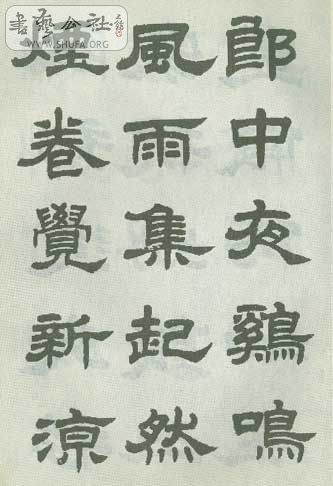 書藝公社
WWW.SHUFA.ORG
郎中夜鷄鳴
風雨集起然
煙卷覺新涼